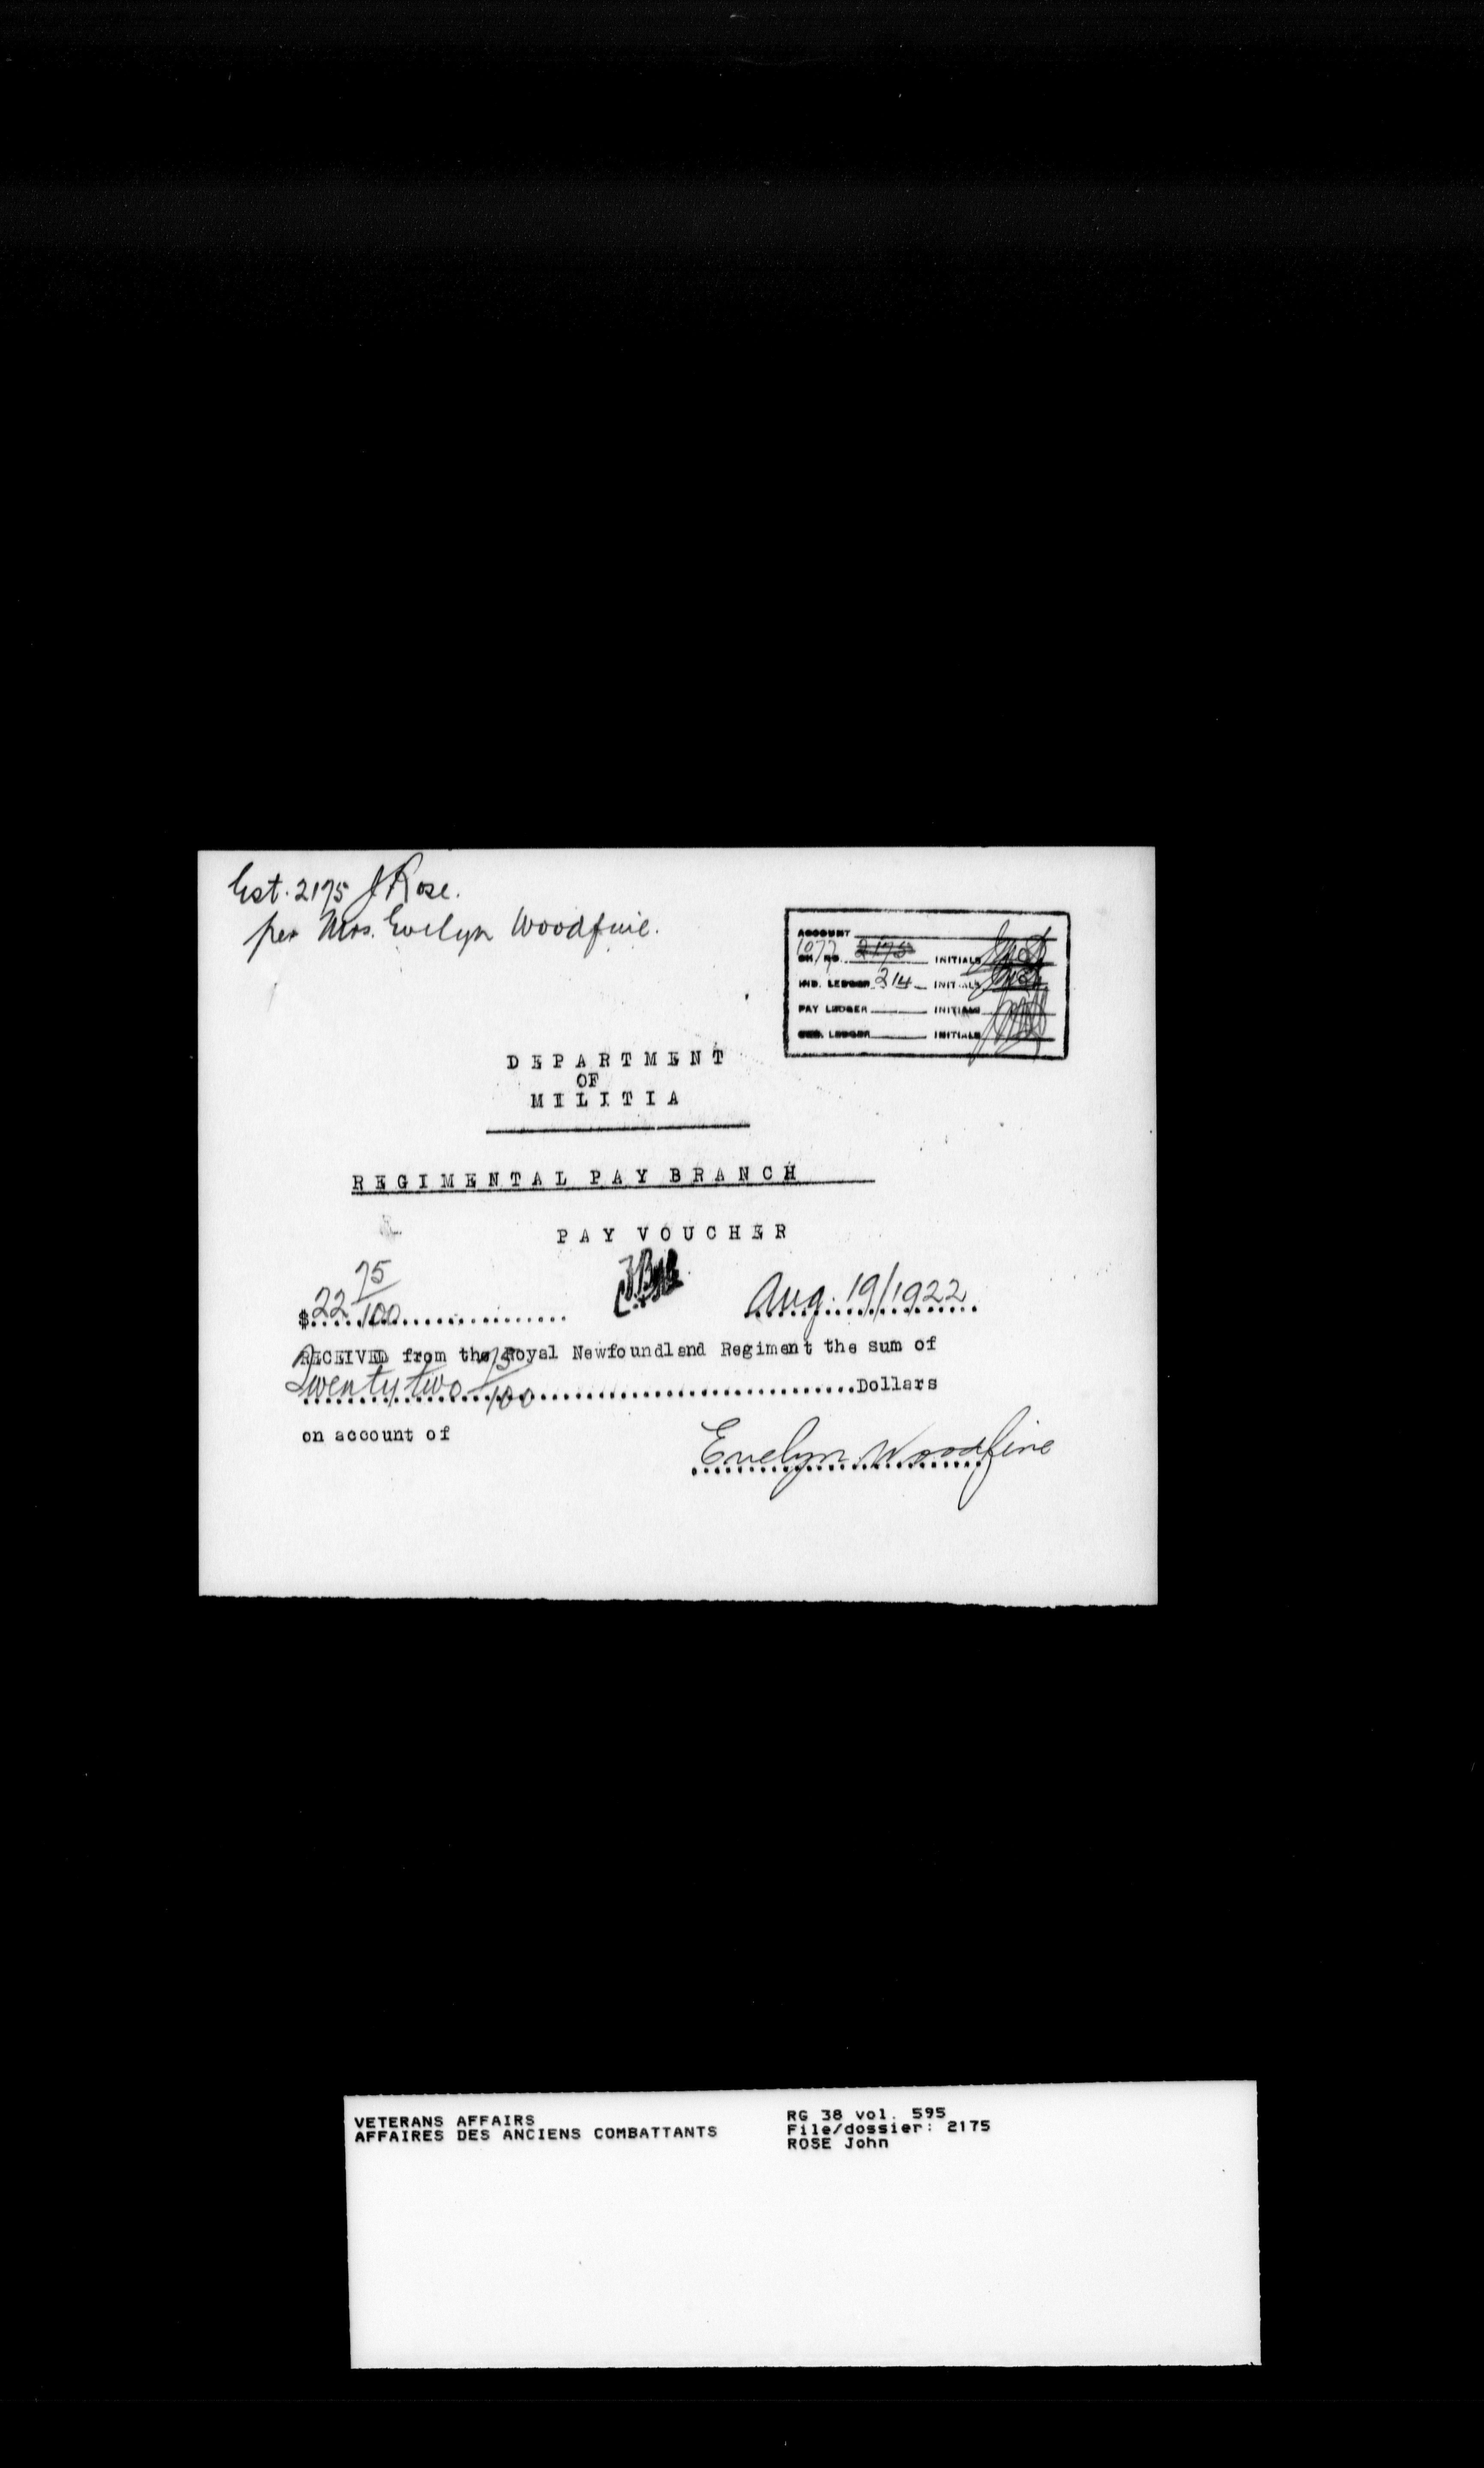 Est. 2175 J Rose.
per Mrs. Evelyn Woodfine.
ACCOUNT
1077
CH. NO. 2175 INITIALS
IND. LEDGER 214 INITIALS
PAY LEDGER INITIALS
GEN. LEDGER INITIALS
DEPARTMENT
OF
MILITIA
REGIMENTAL PAY BRANCH
PAY VOUCHER
$22 75/100 Aug. 19/1922
RECEIVED from the Royal Newfoundland Regiment the sum of
Twenty two 75/100 Dollars
on account of
Evelyn Woodfine
VETERANS AFFAIRS
AFFAIRES DES ANCIENS COMBATTANTS
RG 38 vol. 595
File/dossier: 2175
ROSE John